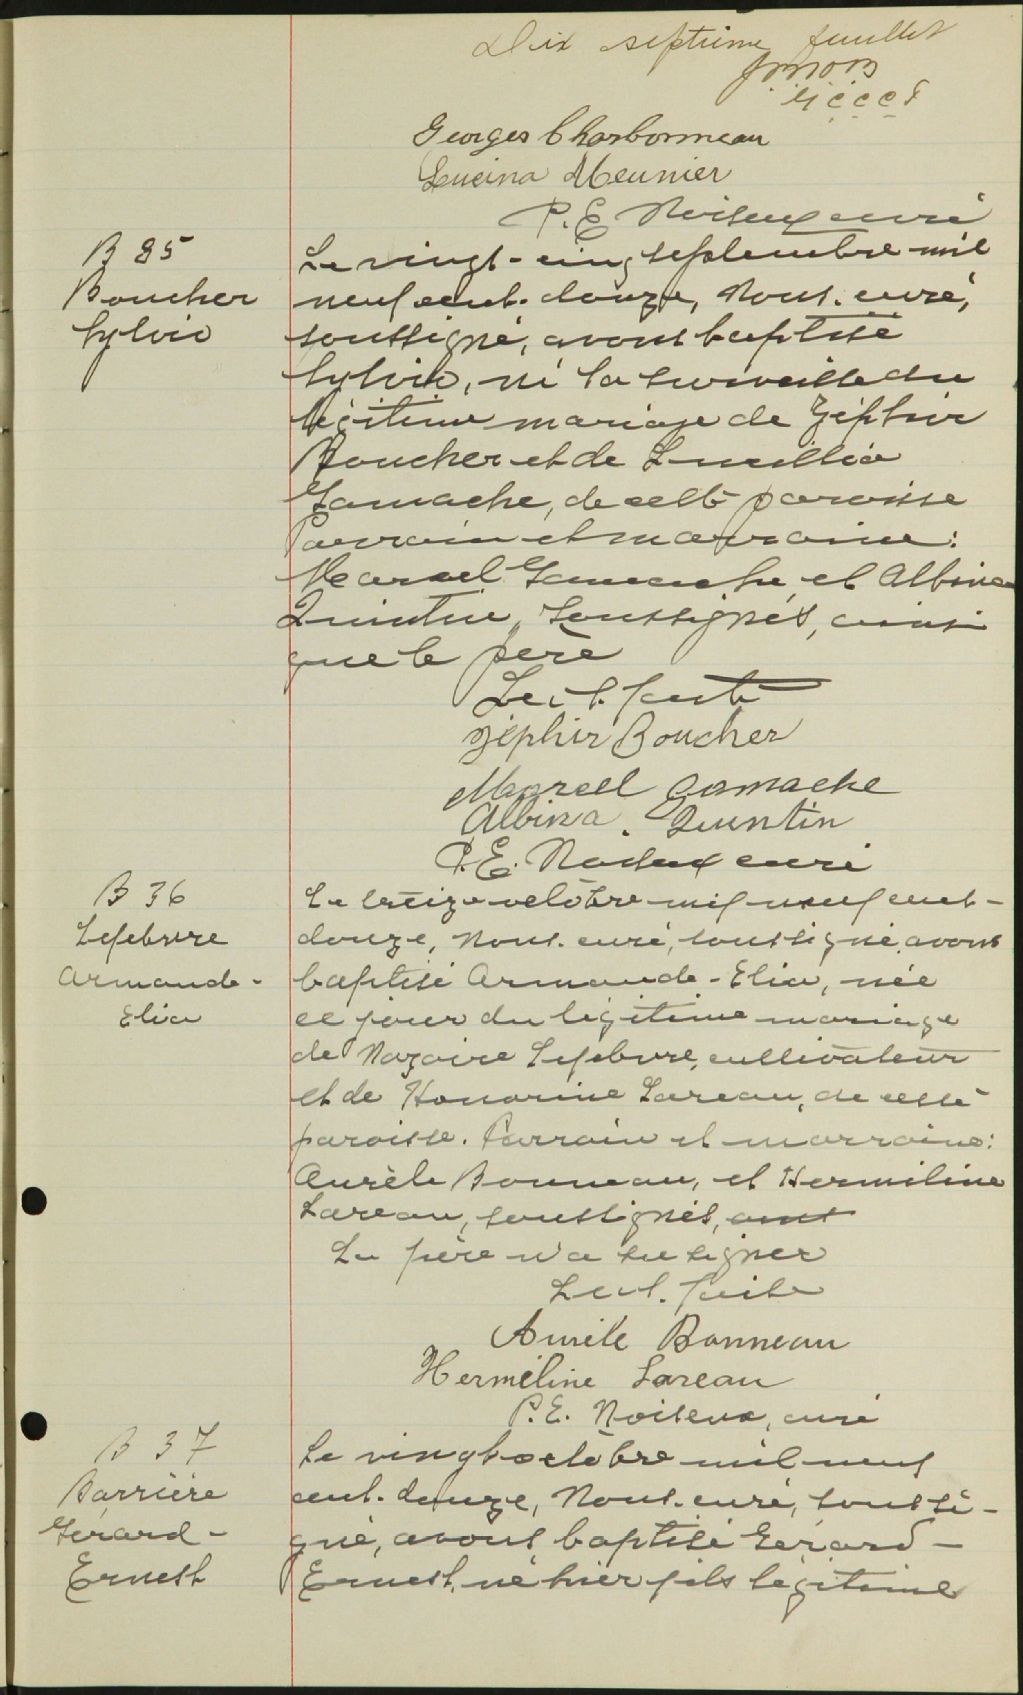 Dix septième feuillet
Georges Charbonneau
Lucina Meunier
P.E. Noiseux curé
B 35
Boucher
Sylvio
Le vingt-cinq septembre mil
neuf cent-douze, Nous-curé,
soussigné, avons baptisé
Sylvio, né la surveille du
légitime mariage de Zéphir
Boucher et de Lucillia
Gamache, de cette paroisse
Parrain et marraine:
Marcel Gamache et Albina
Quintin, soussignés, ainsi
que le père
Lect. faite
Zéphir Boucher
Marcell Gamache
Albina Quintin
P.E. Noiseux curé
B 36
Lefebvre
Armande-
Elia
Le treize octobre mil neuf cent-
douze, Nous-curé, soussigné, avons
baptisé Armande-Elia, née
ce jour du légitime mariage
de Nazaire Lefebvre, cultivateur
et de Honorine Lareau, de cette
paroisse. Parrain et marraine:
Aurèle Bonneau, et Hermiline
Lareau, soussignés,
Le père n'a su signer
Lect. faite
Aurèle Bonneau
Herméline Lareau
P.E. Noiseux, curé
B 37
Barrière
Gérard-
Ernest
Le vingt octobre mil neuf
cent-douze, Nous-curé, soussi-
gné, avons baptisé Gérard-
Ernest, né hier fils légitime